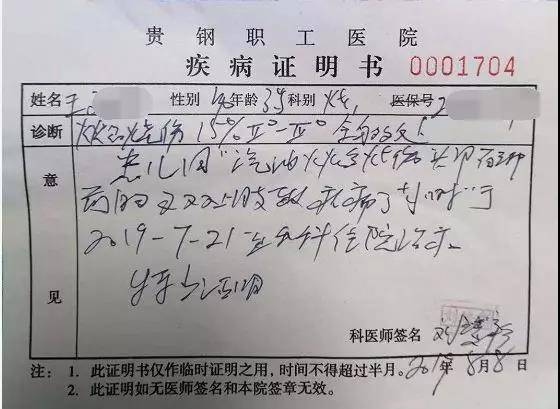 贵钢职工医院
疾病证明书 0001704
姓名 王 性别 女 年龄 3岁 科别 烧 医保号 2
诊断 火焰烧伤 15% Ⅱ°-Ⅲ° 全身多处
意见
患儿因"汽油火焰烧伤头
双上肢 疼痛 "于
2019-7-21 在我科住院治疗。
特此证明
科医师签名
注: 1. 此证明书仅作临时证明之用,时间不得超过半月。 2019年8月8日
2. 此证明如无医师签名和本院签章无效。